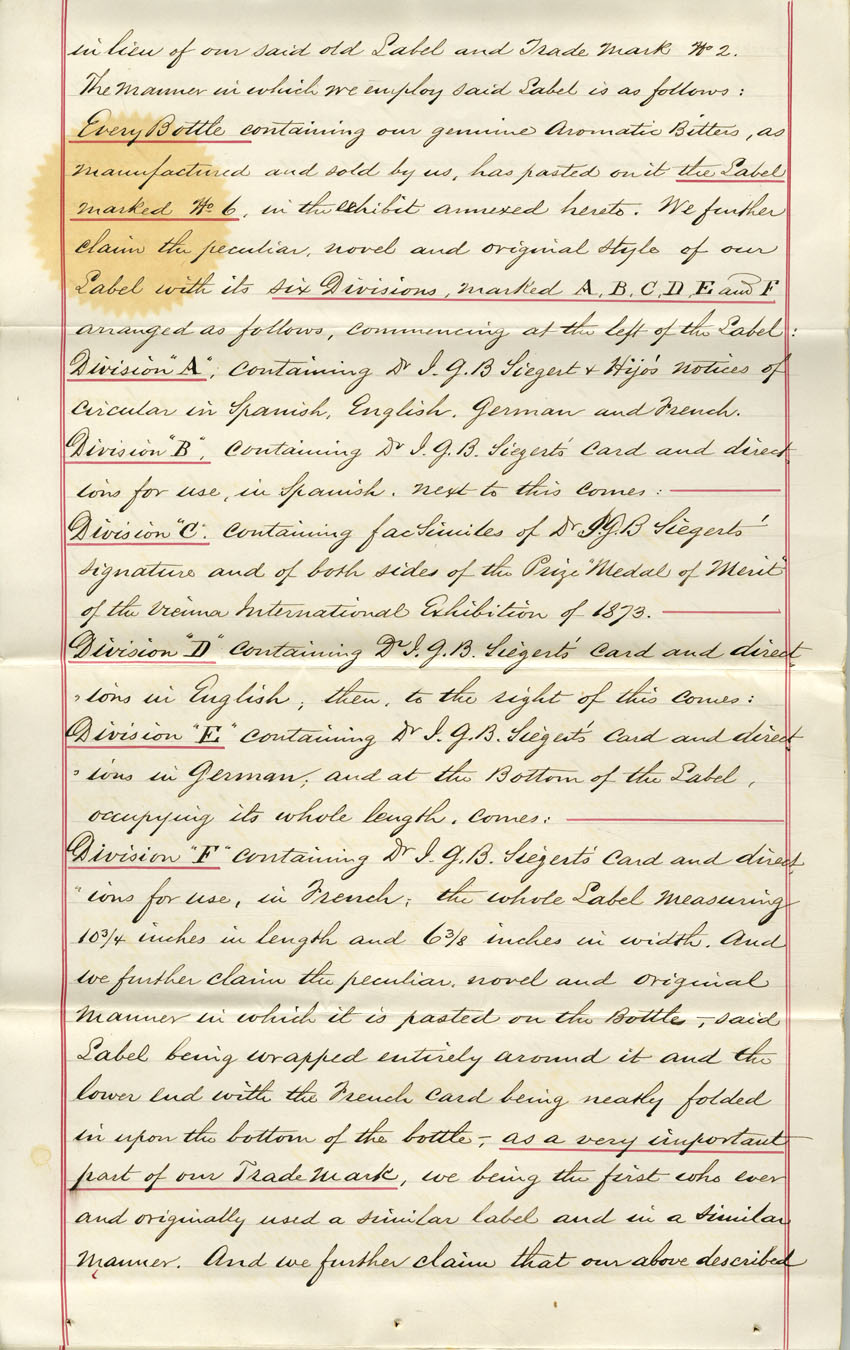 in lieu of our said old Label and Trade Mark No 2.
The manner in which we employ said Label is as follows:
Every Bottle containing our genuine Aromatic Bitters, as
manufactured and sold by us, has pasted on it the Label
marked No 6, in the exhibit annexed hereto. We further
claim the peculiar, novel and original style of our
Label with its six Divisions, marked A, B, C, D, E and F
arranged as follows, commencing at the left of the Label:
Division "A", containing Dr J. G. B Siegert & Hijo's notices of
circular in Spanish, English, German and French.
Division "B", containing Dr J. G. B. Siegerts' card and direct-
ions for use, in Spanish. next to this comes:
Division "C". containing facSimiles of Dr J.G.B Siegerts'
signature and of both sides of the Prize "Medal of Merit"
of the Vienna International Exhibition of 1873.
Division "D" containing Dr J. G. B. Siegerts' card and direct-
"ions in English; then, to the right of this comes:
Division "E" containing Dr J. G. B. Siegert's card and direct-
"ions in German; and at the Bottom of the Label,
occupying its whole length, comes:
Division "F" containing Dr J. G. B. Siegert's card and direct-
"ions for use, in French; the whole Label measuring
10 3/4 inches in length and 6 3/8 inches in width. And
we further claim the peculiar, novel and original
manner in which it is pasted on the Bottle -, said
Label being wrapped entirely around it and the
lower end with the French card being neatly folded
in upon the bottom of the bottle -, as a very important
part of our Trade Mark, we being the first who ever
and originally used a similar label and in a similar
manner. And we further claim that our above described